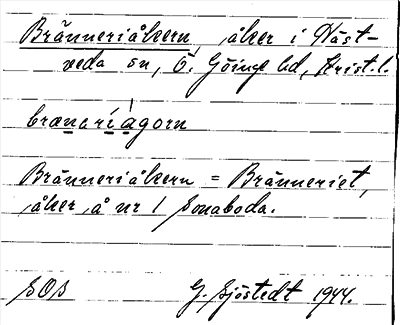 Bränneriåkern, åker i Näst-
veda sn, Ö. Göinge hd, Krist.l.
brænəríagorn
Bränneriåkern = Bränneriet,
åker å nr 1 Sonaboda.
SOS G. Sjöstedt 1944.